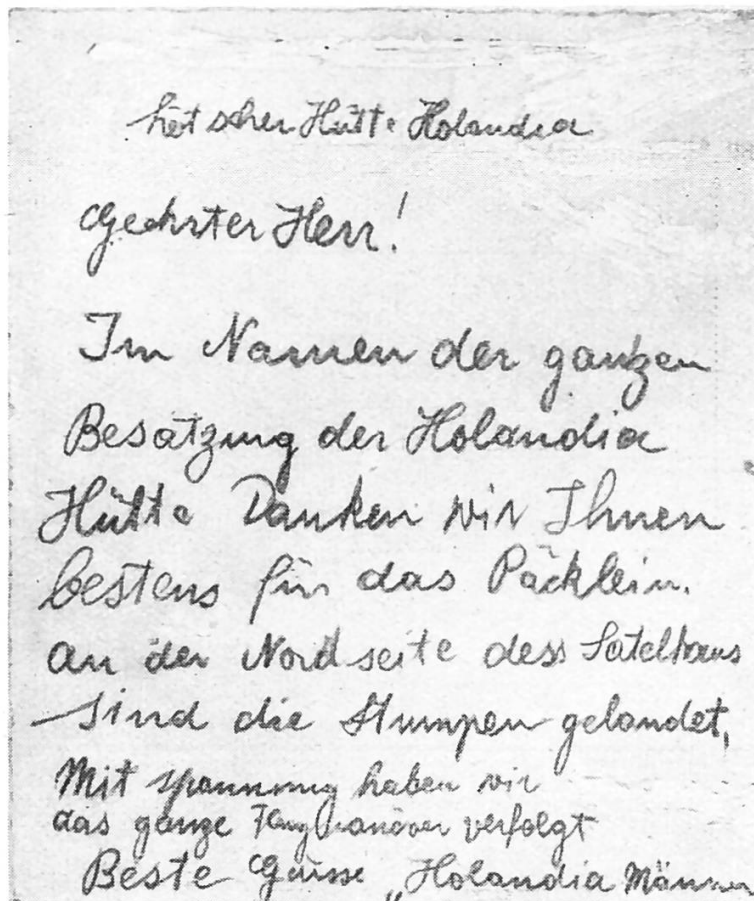 Löt schen Hütte Holandia
Geehrter Herr!
Im Namen der ganzen
Besatzung der Holandia
Hütte Danken wir Ihnen
bestens für das Päcklein.
an der Nordseite dess Satelhorns
sind die Stumpen gelandet,
Mit spannung haben wir
das ganze Flugmanöver verfolgt
Beste Grüsse „Holandia Männer